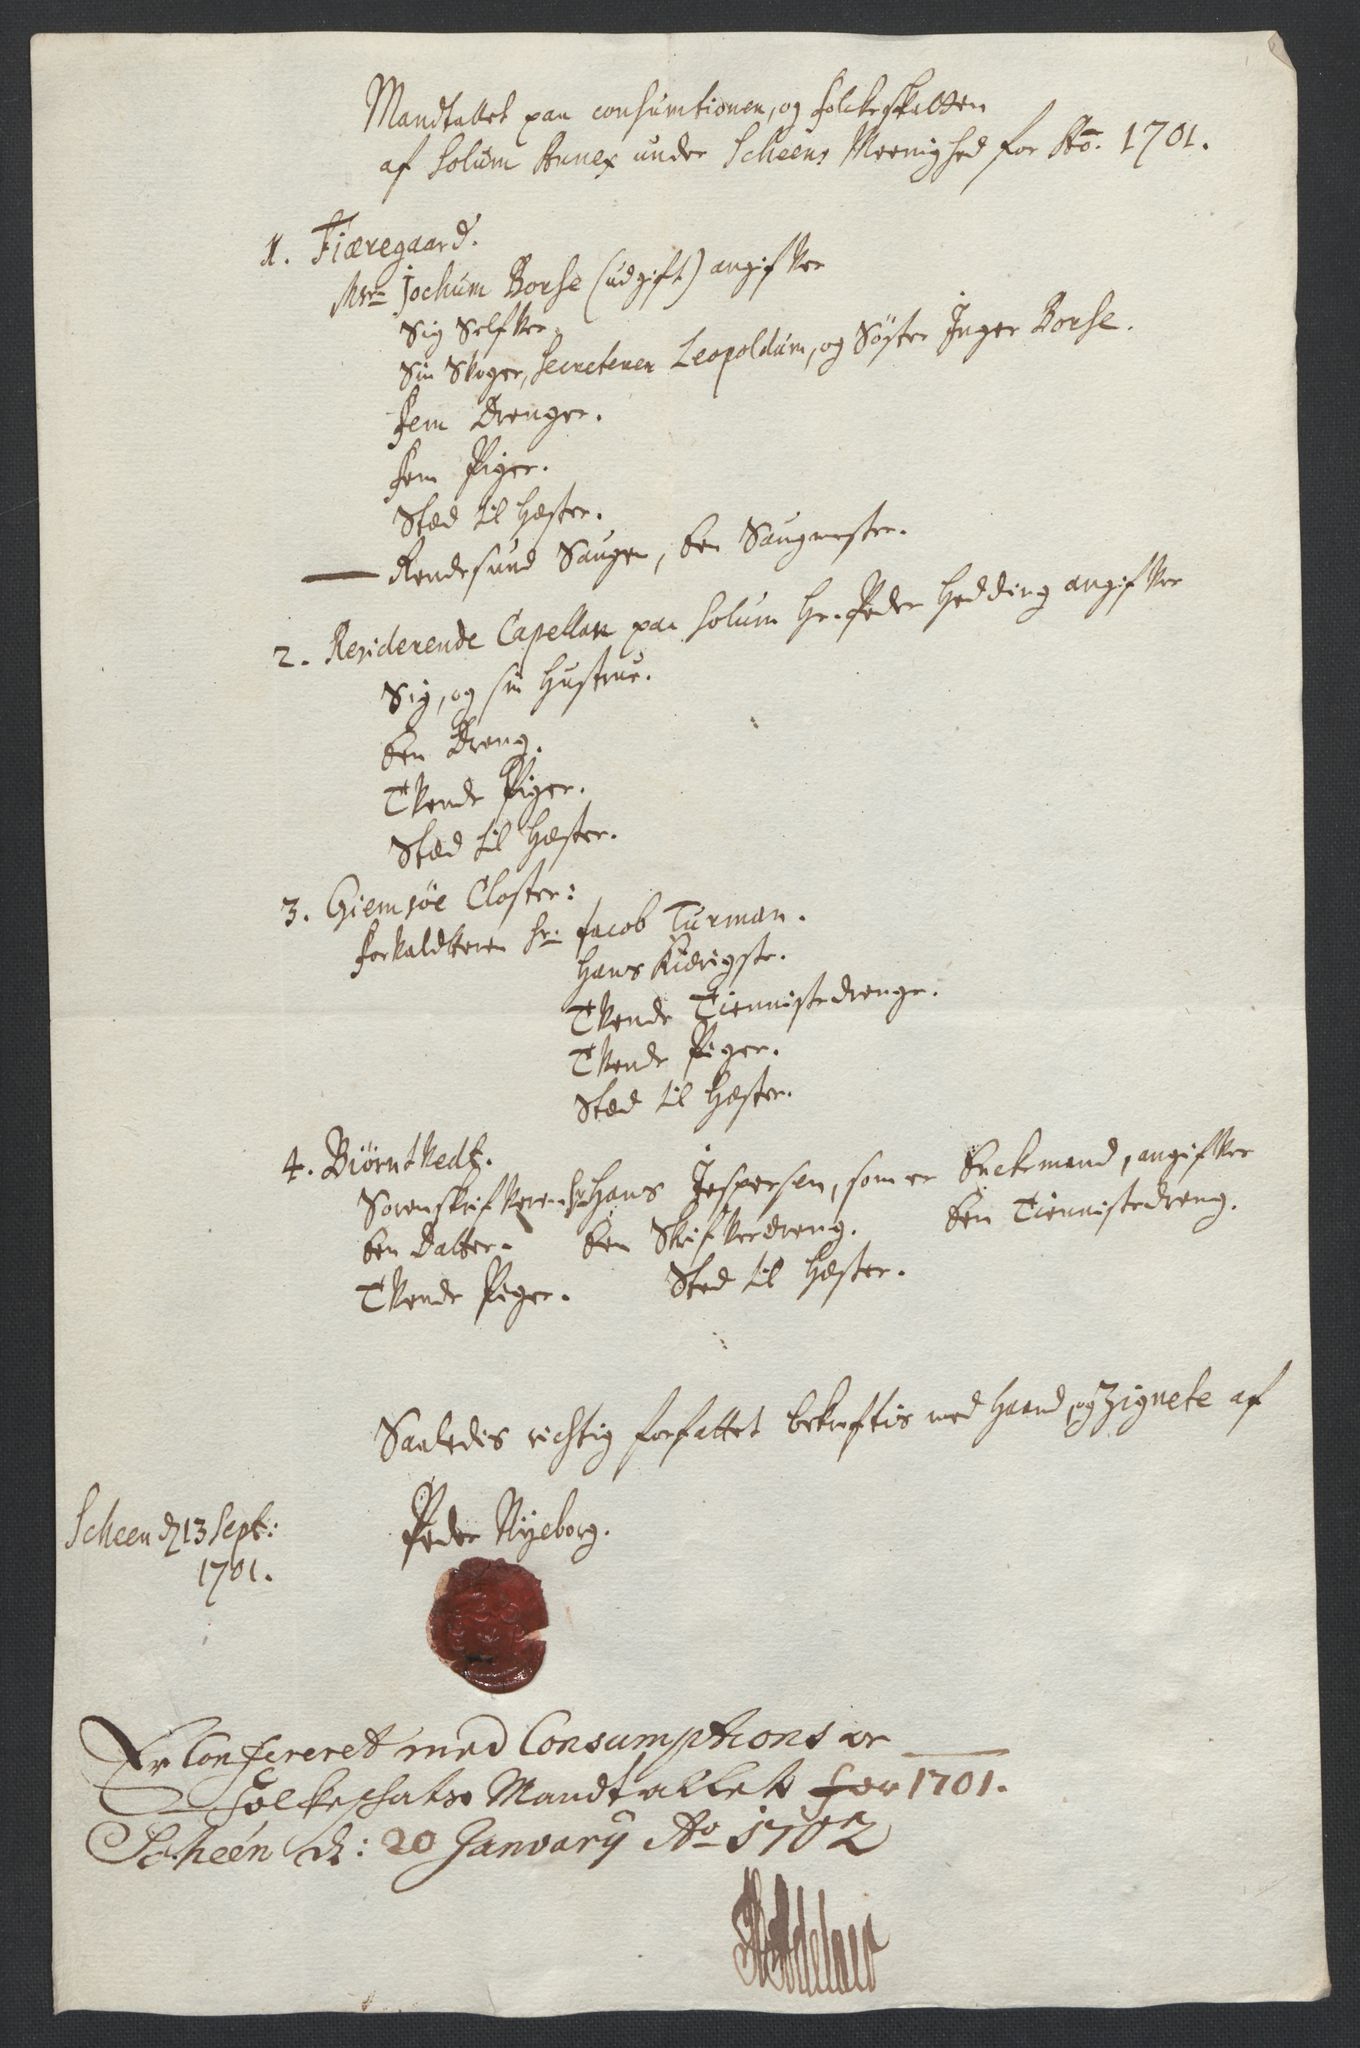 Mandtallet paa consumtionen, og folcheskatten
af Solum Annex under Scheens Meenighed for Ao. 1701.
1. Fiæregaard.
Msr. Jochum Borse (udgift) angifver
Sig Selfver
Sin Svoger, Secreterer Leopoldum, og Søster Inger Borse.
fem Drenger.
fem Piger.
Stæd til Hæster.
— Rendesund Saugen, Een Saugmester.
2. Residerende Capellan paa Solum Hr. Peder Hedding angifver
Sig, og sin Hustrue.
Een Dreng.
Tvende Piger.
Stæd til Hæster.
3. Giemsøe Closter:
Forvaldteren Sr. Jacob Turman.
Hans Kiærigste.
Tvende Tiennistedrenge.
Tvende Piger.
Stæd til Hæster.
4. Biørntvedt.
Sorenskrifveren Sr. Hans Jespersen, som er Enckemand, angifver
Een Datter. Een Skrifverdreng. Een Tiennistedreng.
Tvende Piger. Sted til Hæster.
Saaledis richtig forfattet bekreftis med Haand, og Zignete af
Scheen d. 13 Sept: Peder Nyeborg.
1701.
Er Confereret med Consumptions oc
Folkeschatts Mandtallet for 1701.
Scheen d: 20 January Ao 1702